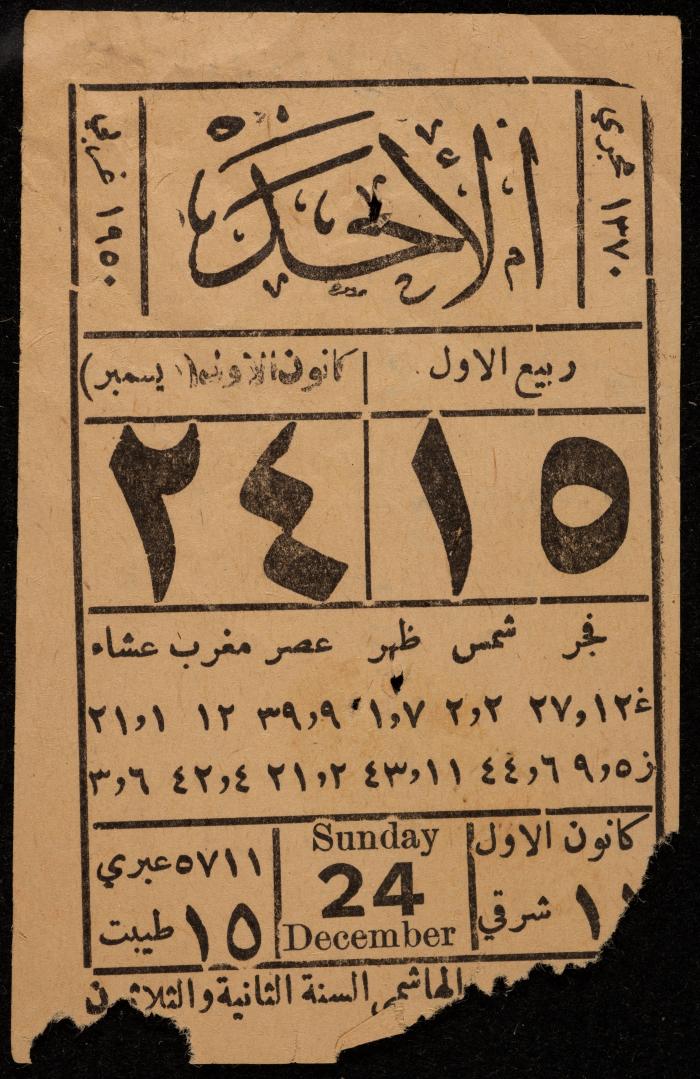 ١٣٧٠ هجري
الأحَد
١٩٥٠ غربي
ربيع الاول
كانون يسمبر)
١٥
٢٤
فجر شمس ظهر عصر مغرب عشاء
غ١٢و٢٧ ٢و٢ ٧و١ ٩و٣٩ ١٢ ١و٢١
ز٥و٩ ٦و٤٤ ١١و٤٣ ٢و٢١ ٤و٤٢ ٦و٣
كانون الاول
شرقي
Sunday
24
December
٥٧١١ عبري
١٥ طيبت
الهاشمي السنة الثانية والثلاثون